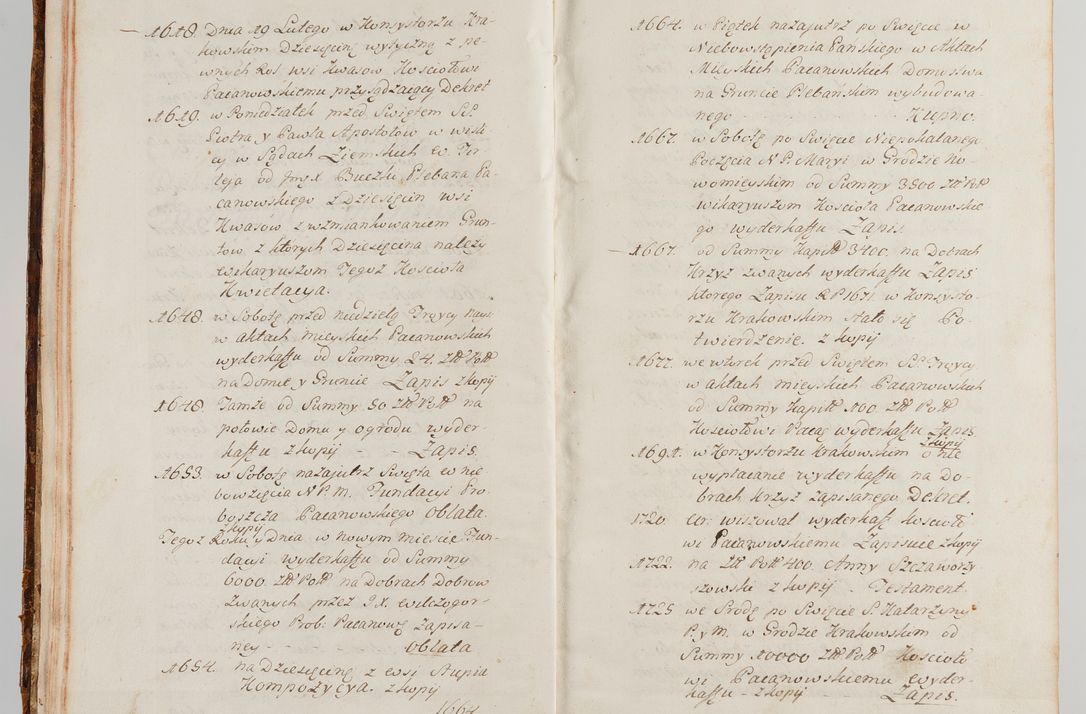 1618 Dnia 19 Lutego w Konsystorzu Kra-
kowskim Dziesięcinę wytyczną z pe-
wnych Rol wsi Kwasow Kosciołowi
Pacanowskiemu przysądzaiący Dekret
1619. w Poniedziałek przed Swiętem SS.
Piotra y Pawła Apostołow w wisli-
cy w Sądach Ziemskich
od Jmx Buczka Plebana Pa-
canowskiego z Dziesięcin wsi
Kwasow z wzmiankowaniem Grun-
tow z ktorych Dziesięcina należy
wikaryuszom Tegoż Koscioła
Kwietacya.
1648. w Sobotę przed niedzielą Tróycy
w aktach mieyskich Pacanowskich
wyderkaffu od Summy 24. Złł Poll
na Domie y Gruncie Zapis z kopij
1648. Tamże od Summy 50 Złł Poll na
połowie Domu y ogrodu wyder-
kaffu z kopij - - Zapis.
1653. w Sobotę nazajutrz Swięta wnie
bowzięcia N P. M. Fundacyi Pro-
boszcza Pacanowskiego oblata.
z kopij
Tegoż Roku y Dnia w nowym miescie Fun-
dacyi wyderkaffu od Summy
6000 Złł Poll na Dobrach Dobrow
zwanych przez J.X. wilczogor-
skiego Prob: Pacanow: Zapisa-
ney - - - - oblata
1654. na Dziesięcinę z wsi Słupia
Kompozycya. z kopij
1664.
1664. w Piątek nazajutrz po Swięcie w
Niebowstąpienia Pańskiego w Aktach
Mieyskich Pacanowskich Domostwa
na Gruncie Plebańskim wybudowa-
nego - - - Kupno.
1667. w Sobotę po Swięcie Niepokalanego
Poczęcia N P. Maryi w Grodzie No-
womieyskim od Summy 3500 Złł Poll
wikaryuszom Koscioła Pacanowskie
go wyderkaffu Zapis.
1667. od Summy Kapitł 3400. na Dobrach
Krzyż zwanych wyderkaffu Zapis
ktorego Zapisu RP1671. w Konsysto-
rzu Krakowskim stało się Po-
twierdzenie. z kopij
1677. we wtorek przed Swiętem SS. Tróycy
w aktach mieyskich Pacanowskich
od Summy Kapitł 100 Złł Poll
Kosciołowi Pacan: wyderkaffu Zapis
z kopij
1691. w Konsystorzu Krakowskim o nie
wypłacanie wyderkaffu na Do-
brach Krzyż zapisanego Dekret.
1720. wiszował wyderkaff koscioło
wi Pacanowskiemu Zapisuie z kopij
1722. na Złł Poll 400. Anny Szczaworzy
szowski z kopij - Testament.
1725 we Srodę po Swięcie S. Katarzyny
P. y M. w Grodzie Krakowskim od
Summy 10000 Złł Poll Koscioło
wi Pacanowskiemu wyder-
kaffu - z kopij - Zapis.